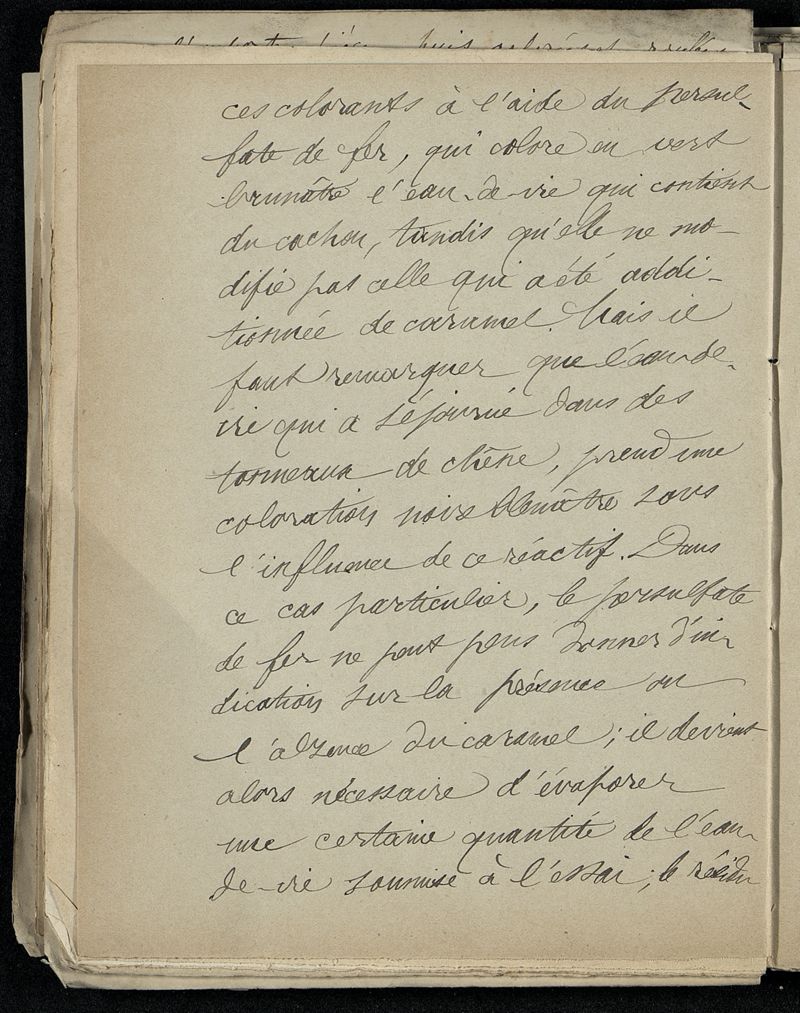 ces colorants à l'aide du persul-
fate de fer, qui colore en vert
brunâtre l'eau-de-vie qui contient
du cachou, tandis qu'elle ne mo-
difie pas celle qui a été addi-
tionnée de caramel. Mais il
faut remarquer que l'eau-de-
vie qui a séjourné dans des
tonneaux de chêne, prend une
coloration noire bleuâtre sous
l'influence de ce réactif. Dans
ce cas particulier, le persulfate
de fer ne peut pas donner d'in-
dication sur la présence ou
l'absence du caramel ; il devient
alors nécessaire d'évaporer
une certaine quantité de l'eau-
de-vie soumise à l'essai ; le résidu